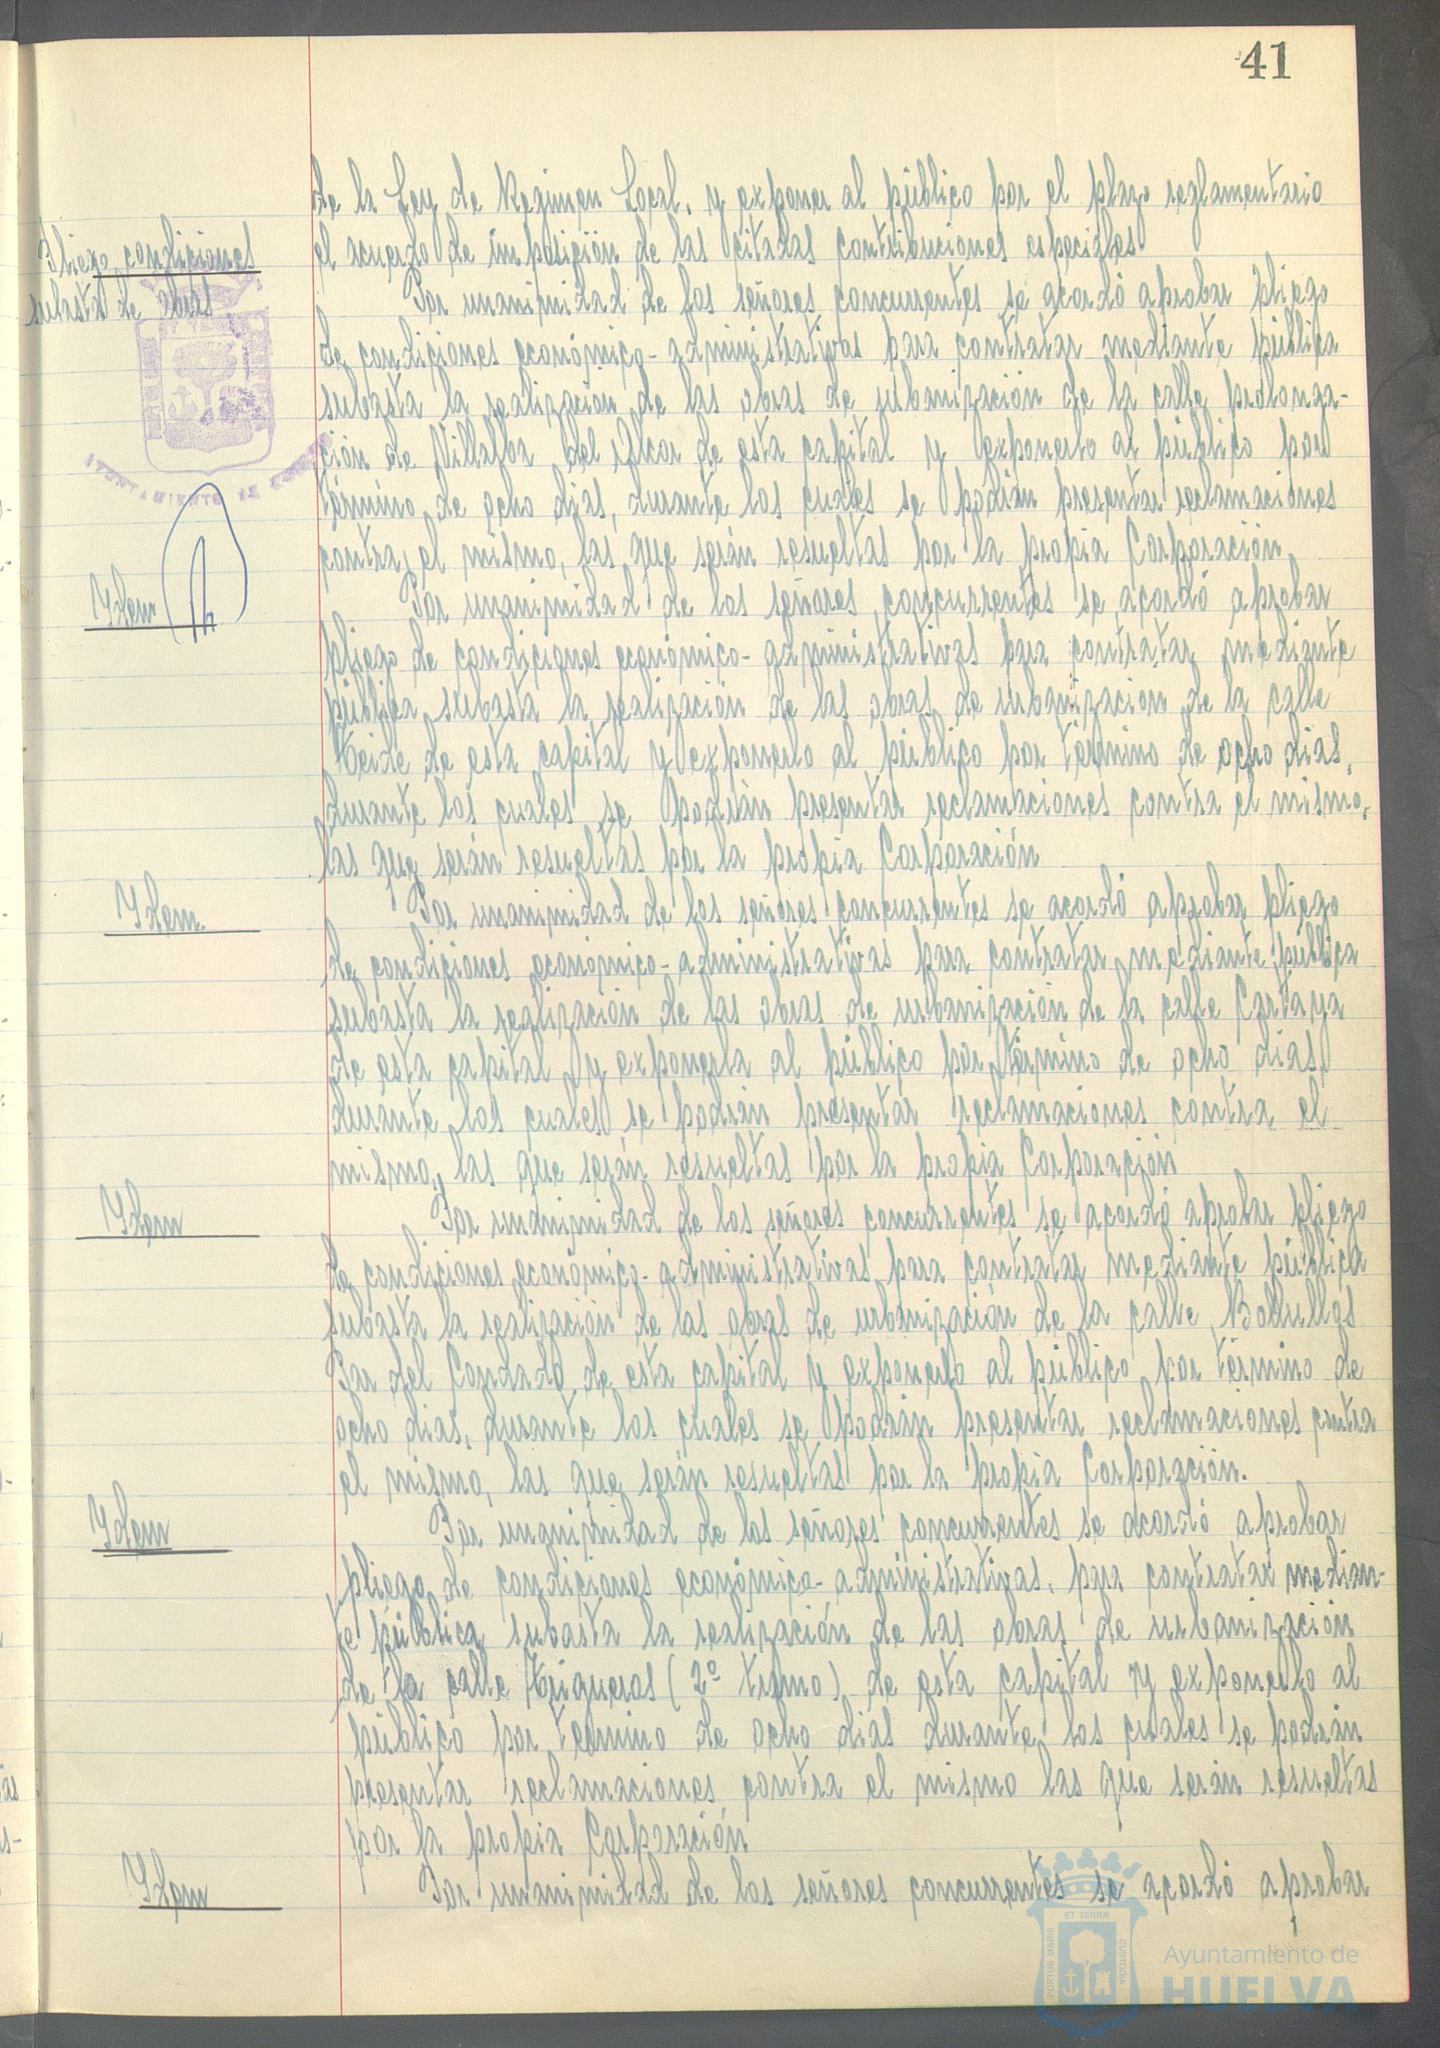 41
de la Ley de Regimen Local, y exponer al público por el plazo reglamentario
el acuerdo de imposición de las citadas contribuciones especiales
Pliego condiciones
subasta de obras
Por unanimidad de los señores concurrentes se acordó aprobar pliego
de condiciones económico-administrativas para contratar mediante pública
subasta la realización de las obras de urbanización de la calle prolonga-
ción de Villalba del Alcor de esta capital y exponerlo al público por
término de ocho dias, durante los cuales se podrán presentar reclamaciones
contra el mismo, las que serán resueltas por la propia Corporación
AYUNTAMIENTO DE
Idem
Por unanimidad de los señores concurrentes se acordó aprobar
pliego de condiciones económico-administrativas para contratar mediante
pública subasta la realización de las obras de urbanización de la calle
Teide de esta capital y exponerlo al público por término de ocho dias,
durante los cuales se podrán presentar reclamaciones contra el mismo,
las que serán resueltas por la propia Corporación
Idem.
Por unanimidad de los señores concurrentes se acordó aprobar pliego
de condiciones económico-administrativas para contratar mediante pública
subasta la realización de las obras de urbanización de la calle Cartaya
de esta capital y exponerla al público por término de ocho dias
durante los cuales se podrán presentar reclamaciones contra el
mismo, las que serán resueltas por la propia Corporación
Idem
Por unanimidad de los señores concurrentes se acordó aprobar pliego
de condiciones económico-administrativas para contratar mediante pública
subasta la realización de las obras de urbanización de la calle Bollullos
Par del Condado de esta capital y exponerlo al público por término de
ocho dias, durante los cuales se podrán presentar reclamaciones contra
el mismo, las que serán resueltas por la propia Corporación.
Idem
Por unanimidad de los señores concurrentes se acordó aprobar
pliego de condiciones económico-administrativas, para contratar median-
te pública subasta la realización de las obras de urbanización
de la calle Trigueros (2º tramo) de esta capital y exponerlo al
público por termino de ocho dias durante los cuales se podrán
presentar reclamaciones contra el mismo las que serán resueltas
por la propia Corporación
Idem
Por unanimidad de los señores concurrentes se acordó aprobar
PORTUS MARIS
ET TERRÆ
CUSTODIA
Ayuntamiento de
HUELVA